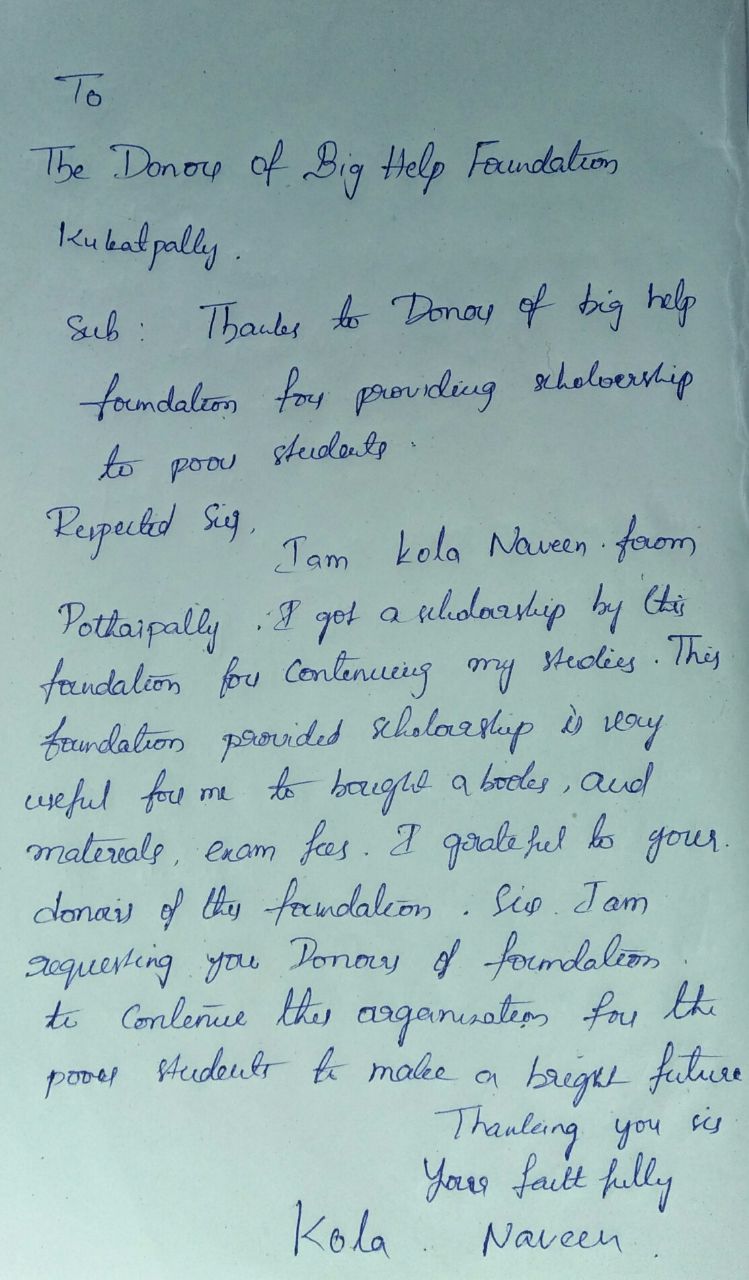 To
The Donors of Big Help Foundation
Kukatpally.
Sub : Thanks to Donors of big help
foundation for providing scholoership
to poor students.
Respected Sir,
I am Kola Naveen. from
Pothaipally. I got a scholaarship by this
foundation for Contenueing my studies. This
foundation provided scholaarship is very
useful for me to bought a books, and
matereals, exam fees. I grateful to your.
donors of this foundation. Sir I am
requesting you Donors of foundation.
to Contenue this organisation for the
poor students to make a bright future
Thanking you sir
Your faithfully
Kola Naveen.